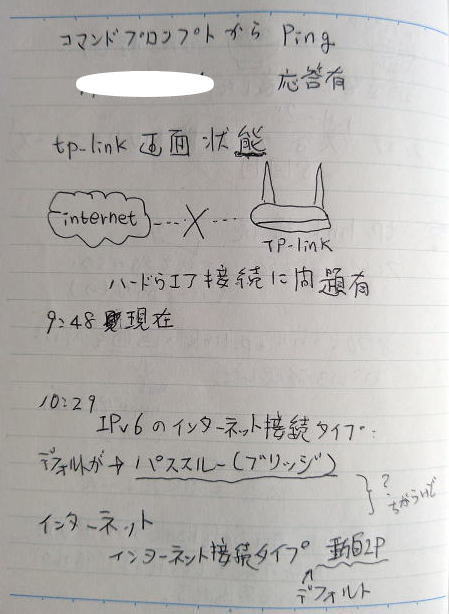 コマンドプロンプトから Ping
応答有
tp-link 画面 状態
internet
TP-link
ハードらエア接続に問題有
9:48 現在
10:29
IPv6のインターネット接続タイプ:
デフォルトが→ パススルー(ブリッジ)
?
ちがうけど
インターネット
インターネット接続タイプ 動的IP
↑
デフォルト